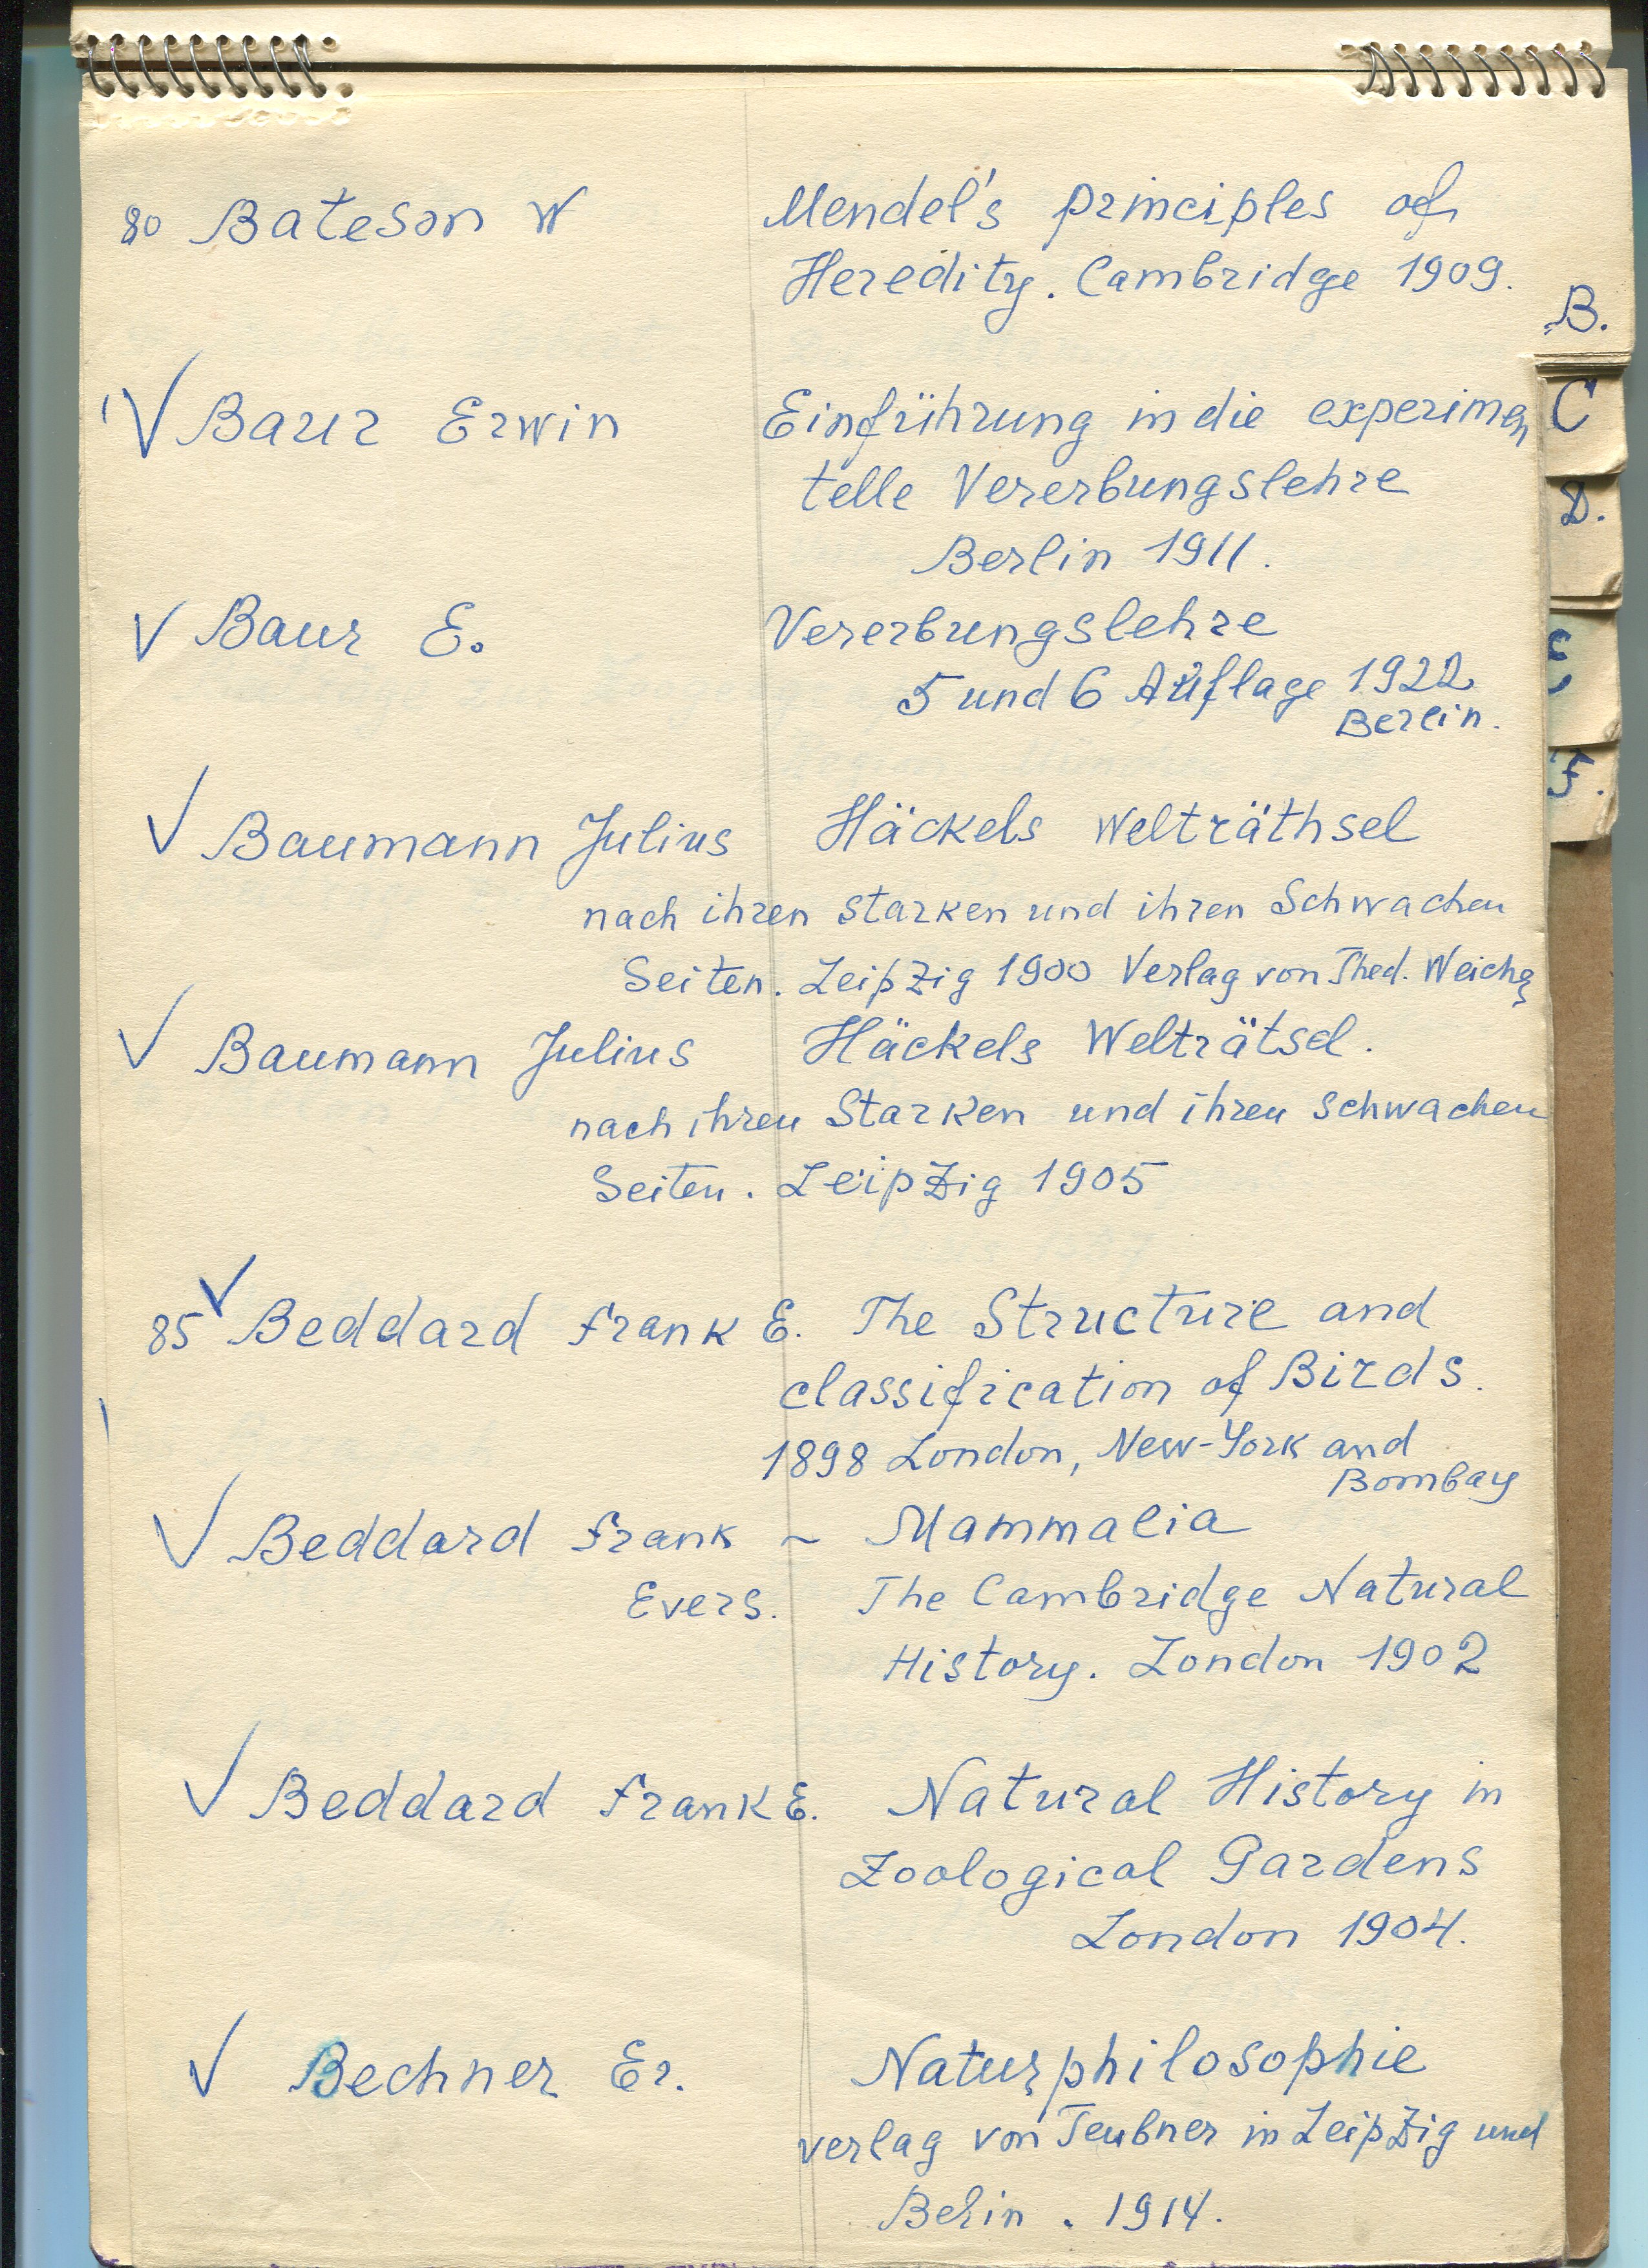 80 Bateson W Mendel's principles of
Heredity. Cambridge 1909.
B.
Baur Erwin Einführung in die experimen
C
telle Vererbungslehre
D.
Berlin 1911.
Baur E. Vererbungslehre
E.
5 und 6 Auflage 1922
Berlin.
F.
Baumann Julius Häckels Welträthsel
nach ihren starken und ihren Schwachen
Seiten. Leipzig 1900 Verlag von Thed. Weicher
Baumann Julius Häckels Welträtsel.
nach ihren Starken und ihren schwachen
Seiten. Leipzig 1905
85 Beddard Frank E. The Structure and
classification of Birds.
1898 London, New-York and
Bombay
Beddard Frank ~ Mammalia
Evers. The Cambridge Natural
History. London 1902
Beddard Frank E. Natural History in
Zoological Gardens
London 1904.
Bechner Er. Naturphilosophie
verlag von Teubner in Leipzig und
Belin. 1914.